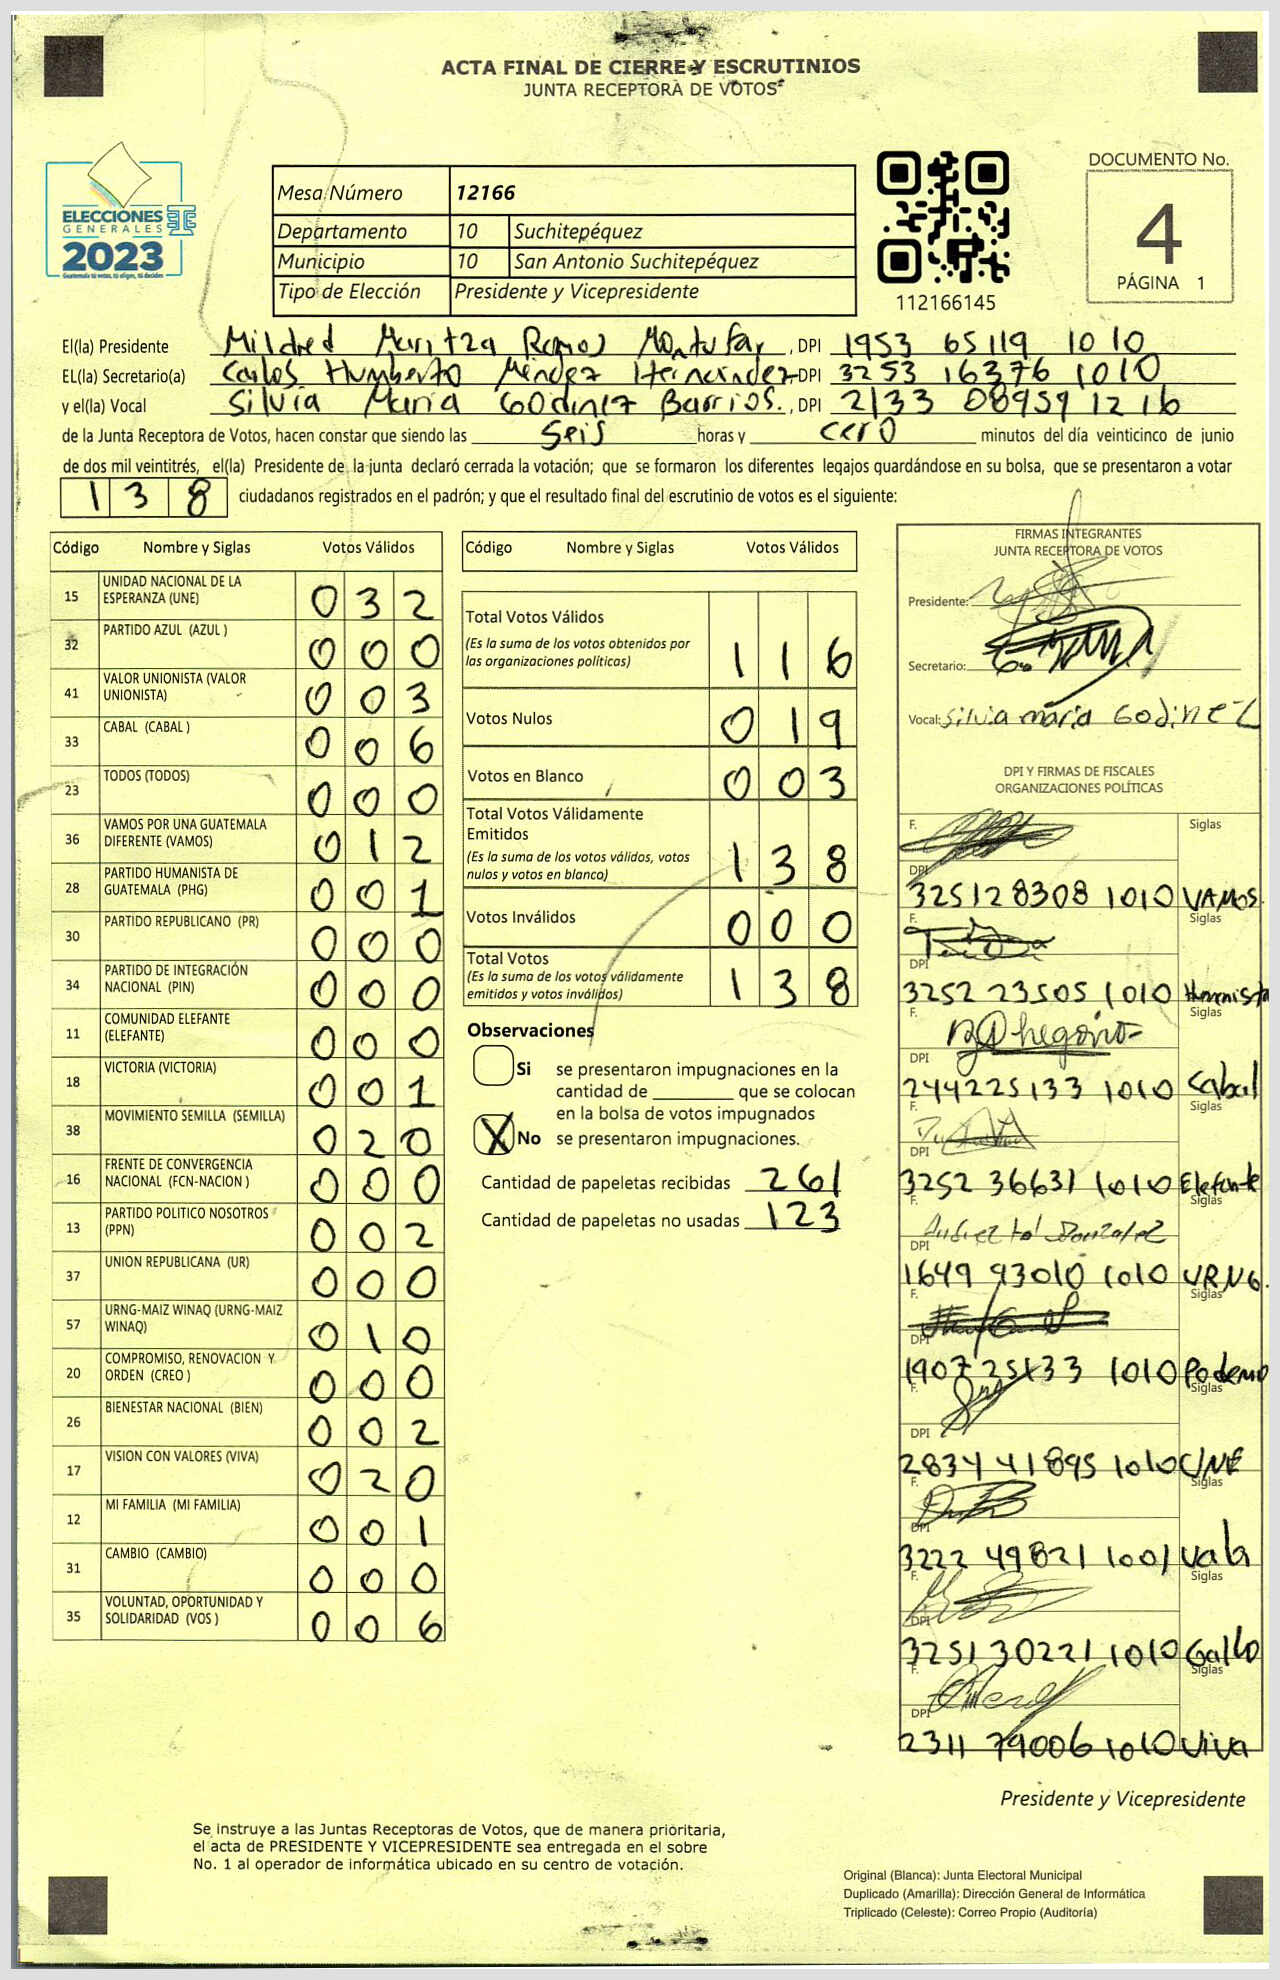 ACTA FINAL DE CIERRE Y ESCRUTINIOS
JUNTA RECEPTORA DE VOTOS
ELECCIONES
GENERALES
2023
Guatemala tú votas, tú eliges, tú decides
Mesa Número 12166
Departamento 10 Suchitepéquez
Municipio 10 San Antonio Suchitepéquez
Tipo de Elección Presidente y Vicepresidente
112166145
DOCUMENTO No.
4
PÁGINA 1
El(la) Presidente Mildred Maritza Ramos Montufar, DPI 1953 65119 1010
EL(la) Secretario(a) Carlos Humberto Méndez Hernández DPI 3253 16376 1010
y el(la) Vocal Silvia María Godínez Barrios., DPI 2133 08959 1216
de la Junta Receptora de Votos, hacen constar que siendo las seis horas y cero minutos del día veinticinco de junio
de dos mil veintitrés, el(la) Presidente de la junta declaró cerrada la votación; que se formaron los diferentes legajos guardándose en su bolsa, que se presentaron a votar
138 ciudadanos registrados en el padrón; y que el resultado final del escrutinio de votos es el siguiente:
Código Nombre y Siglas Votos Válidos
15 UNIDAD NACIONAL DE LA ESPERANZA (UNE) 032
32 PARTIDO AZUL (AZUL ) 000
41 VALOR UNIONISTA (VALOR UNIONISTA) 003
33 CABAL (CABAL ) 006
23 TODOS (TODOS) 000
36 VAMOS POR UNA GUATEMALA DIFERENTE (VAMOS) 012
28 PARTIDO HUMANISTA DE GUATEMALA (PHG) 001
30 PARTIDO REPUBLICANO (PR) 000
34 PARTIDO DE INTEGRACIÓN NACIONAL (PIN) 000
11 COMUNIDAD ELEFANTE (ELEFANTE) 000
18 VICTORIA (VICTORIA) 001
38 MOVIMIENTO SEMILLA (SEMILLA) 020
16 FRENTE DE CONVERGENCIA NACIONAL (FCN-NACION ) 000
13 PARTIDO POLITICO NOSOTROS (PPN) 002
37 UNION REPUBLICANA (UR) 000
57 URNG-MAIZ WINAQ (URNG-MAIZ WINAQ) 010
20 COMPROMISO, RENOVACION Y ORDEN (CREO ) 000
26 BIENESTAR NACIONAL (BIEN) 002
17 VISION CON VALORES (VIVA) 020
12 MI FAMILIA (MI FAMILIA) 001
31 CAMBIO (CAMBIO) 000
35 VOLUNTAD, OPORTUNIDAD Y SOLIDARIDAD (VOS ) 006
Código Nombre y Siglas Votos Válidos
Total Votos Válidos 116
(Es la suma de los votos obtenidos por
las organizaciones políticas)
Votos Nulos 019
Votos en Blanco 003
Total Votos Válidamente
Emitidos 138
(Es la suma de los votos válidos, votos
nulos y votos en blanco)
Votos Inválidos 000
Total Votos 138
(Es la suma de los votos válidamente
emitidos y votos inválidos)
Observaciones
Si se presentaron impugnaciones en la
cantidad de ________ que se colocan
en la bolsa de votos impugnados
X No se presentaron impugnaciones.
Cantidad de papeletas recibidas 261
Cantidad de papeletas no usadas 123
FIRMAS INTEGRANTES
JUNTA RECEPTORA DE VOTOS
Presidente:
Secretario:
Vocal: Silvia maria Godinez
DPI Y FIRMAS DE FISCALES
ORGANIZACIONES POLÍTICAS
F. Siglas
DPI
3251 28308 1010 VAMOS.
F. Siglas
DPI
3252 23505 1010
F. Siglas
DPI
244225133 1010 Cabal
F. Siglas
DPI
3252 36631 1010 Elefante
F. Siglas
DPI
1649 93010 1010 URNG.
F. Siglas
DPI
1907 25133 1010 Podemo
F. Siglas
DPI
2834 41895 1010 UNE
F. Siglas
DPI
3222 49821 1001
F. Siglas
DPI
3251 30221 1010 Gallo
F. Siglas
DPI
2311 79006 1010 Viva
Presidente y Vicepresidente
Se instruye a las Juntas Receptoras de Votos, que de manera prioritaria,
el acta de PRESIDENTE Y VICEPRESIDENTE sea entregada en el sobre
No. 1 al operador de informática ubicado en su centro de votación.
Original (Blanca): Junta Electoral Municipal
Duplicado (Amarilla): Dirección General de Informática
Triplicado (Celeste): Correo Propio (Auditoría)